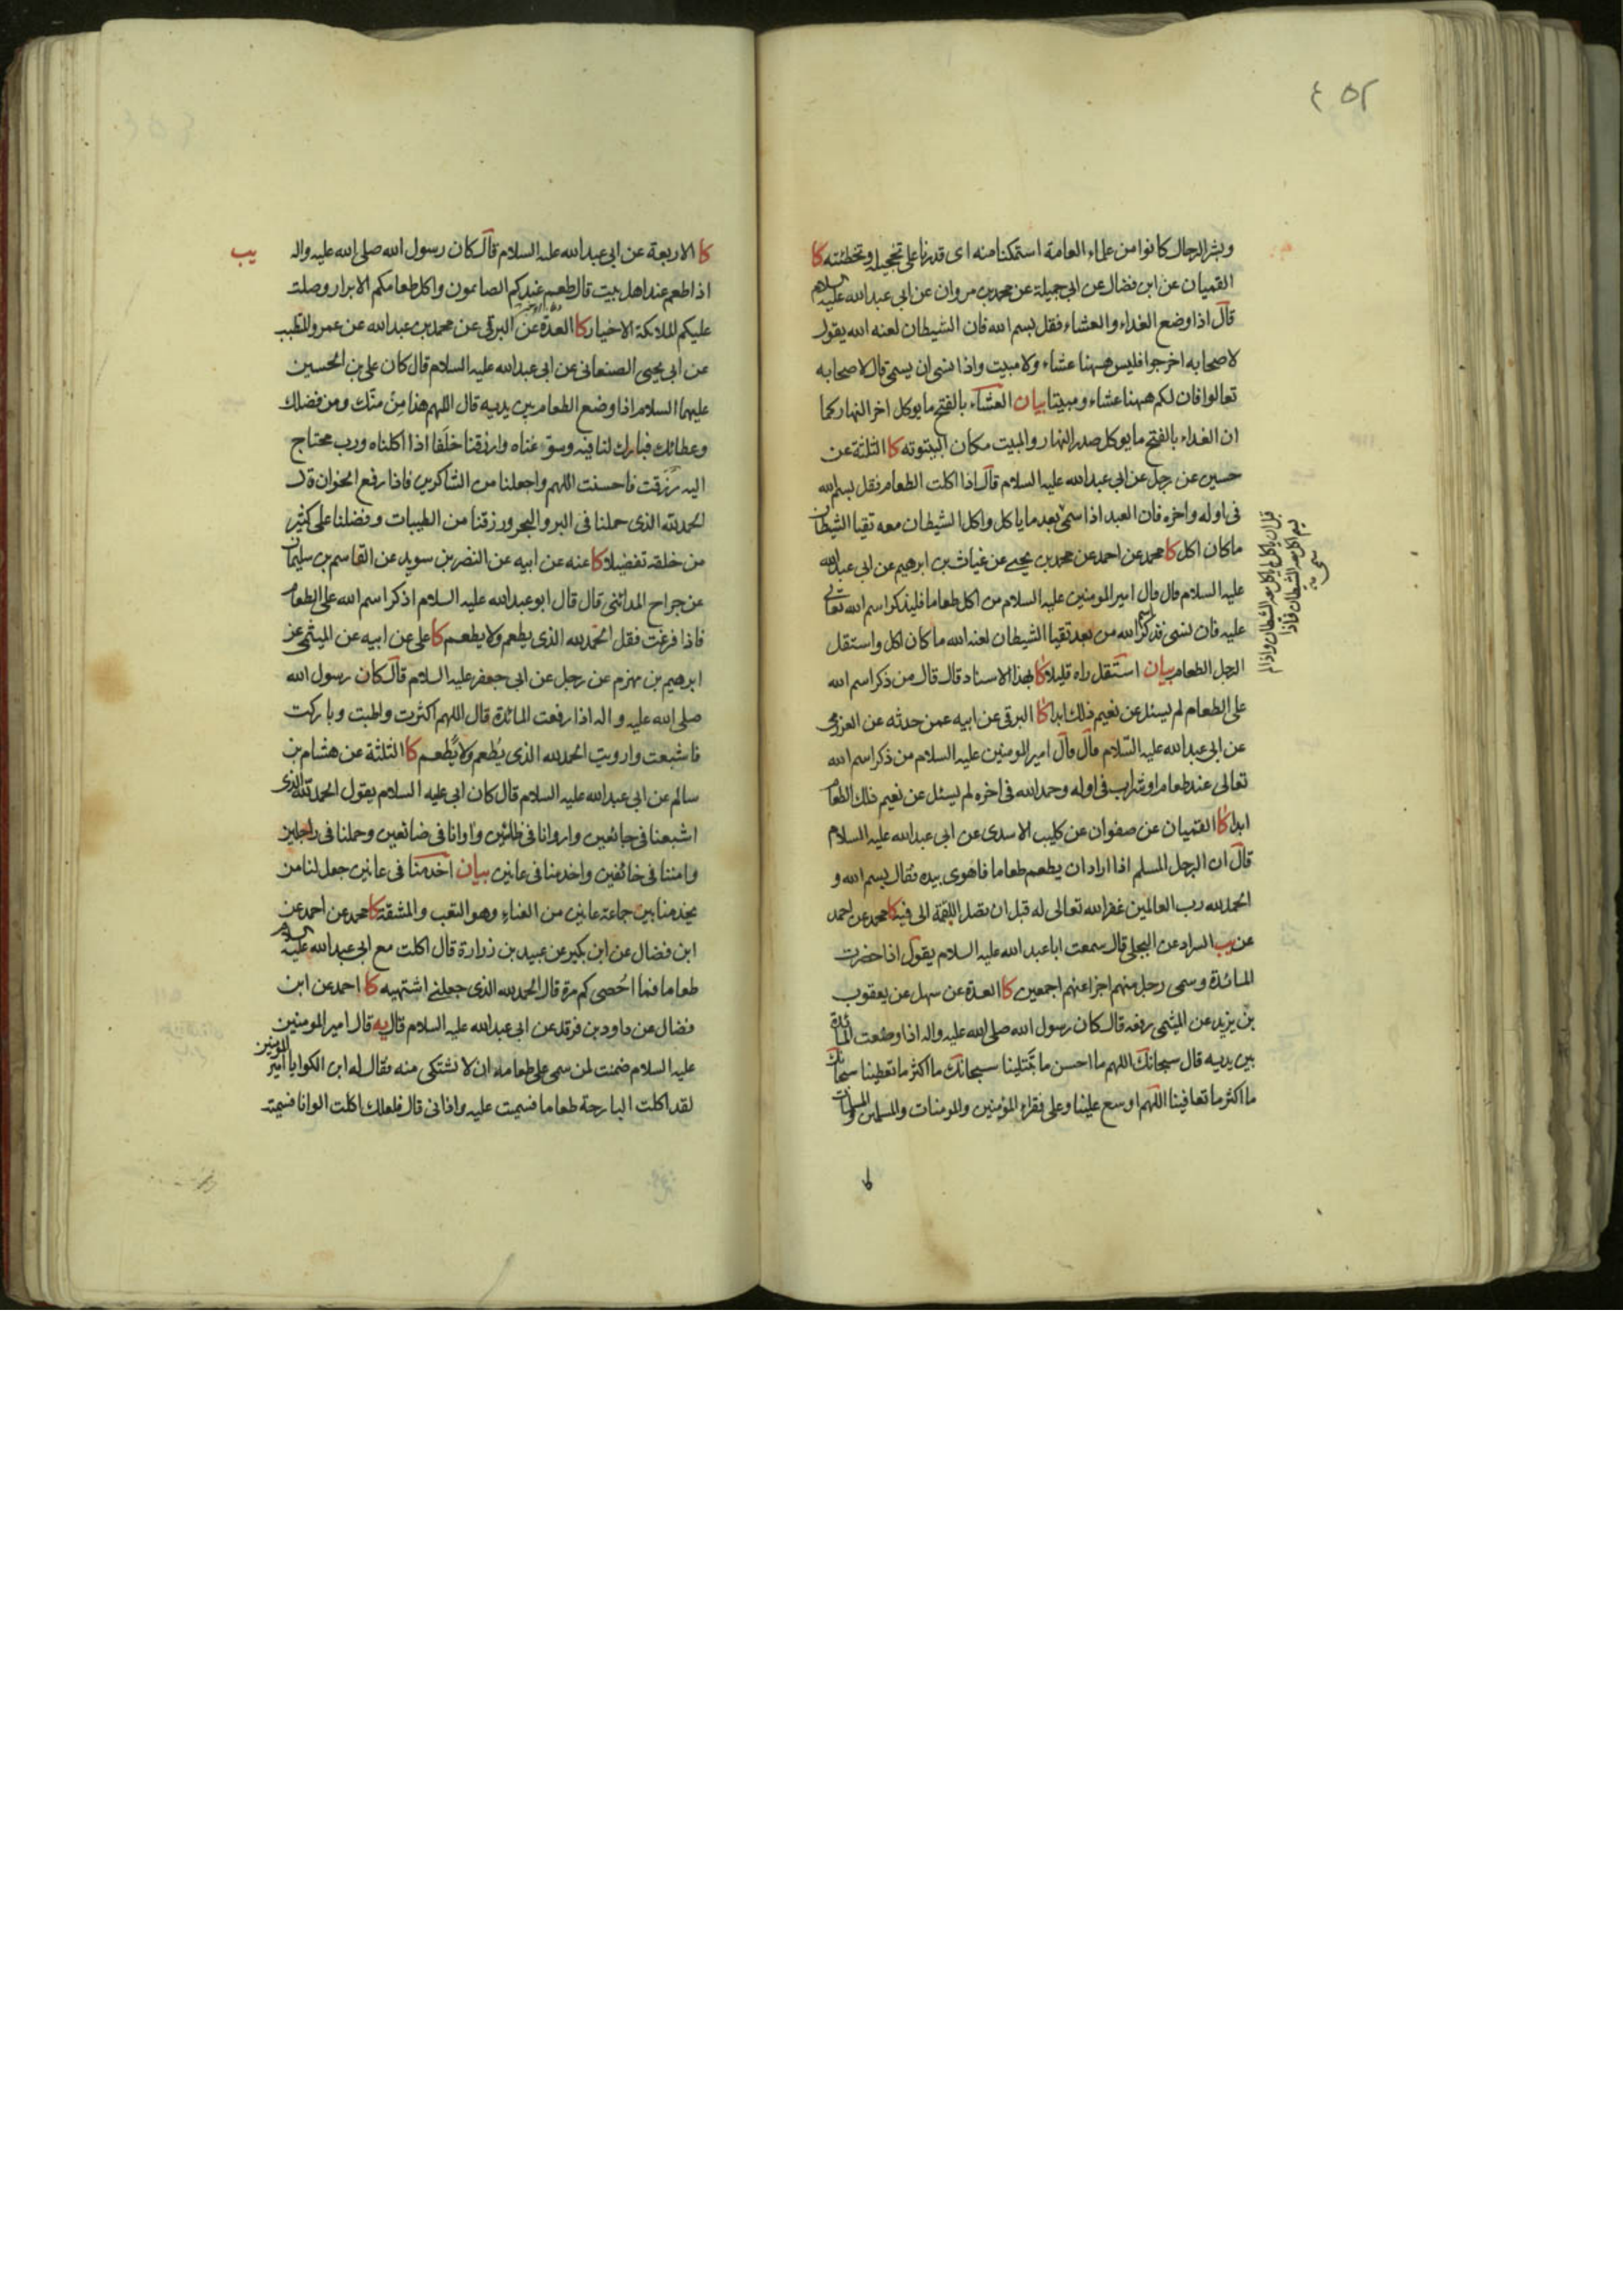 ٤٥٢
وبشر الرحال كانوا من علماء العامة استمكنا منه اى قدرنا على تخجيله وتخطئته كا
القميان عن ابن فضال عن ابى جميلة عن محمد بن مروان عن ابى عبد الله عليه السلام
قال اذا وضع الغداء والعشاء فقل بسم الله فان الشيطان لعنه الله يقول
لاصحابه اخرجوا فليس ههنا عشاء ولا مبيت واذا نسى ان يسمى قال لاصحابه
تعالوا فان لكم ههنا عشاء ومبيتا بيان العشاء بالفتح ما يوكل اخر النهار كما
ان الغداء بالفتح ما يوكل صدر النهار والمبيت مكان البيتوته كا الثلثة عن
حسين عن رجل عن ابى عبد الله عليه السلام قال اذا اكلت الطعام فقل بسم الله
فى اوله واخره فان العبد اذا سمى بعد ما ياكل واكل الشيطان معه تقيا الشيطان
ما كان اكل كا محمد عن احمد عن محمد بن يحيى عن غياث بن ابرهيم عن ابى عبد الله
عليه السلام قال قال امير المومنين عليه السلام من اكل طعاما فليذكر اسم الله تعالى
عليه فان نسى فذكر اسم الله من بعد تقيا الشيطان لعنه الله ما كان اكل واستقل
الرجل الطعام بيان استقل راه قليلا كا بهذا الاسناد قال قال من ذكر اسم الله
على الطعام لم يسئل عن نعيم ذلك ابدا كا البرقى عن ابيه عمن حدثه عن العرزمى
عن ابى عبد الله عليه السلام قال قال امير المومنين عليه السلام من ذكر اسم الله
تعالى عند طعام او شراب فى اوله وحمد الله فى اخره لم يسئل عن نعيم ذلك الطعام
ابدا كا القميان عن صفوان عن كليب الاسدى عن ابى عبد الله عليه السلام
قال ان الرجل المسلم اذا اراد ان يطعم طعاما فاهوى بيده فقال بسم الله و
الحمد لله رب العالمين غفر الله تعالى له قبل ان تصل اللقمة الى فيه كا محمد عن احمد
عن يب السراد عن البجلى قال سمعت ابا عبد الله عليه السلام يقول اذا حضرت
المائدة وسمى رجل منهم اجزا عنهم اجمعين كا العدة عن سهل عن يعقوب
بن يزيد عن الميثمى رفعه قال كان رسول الله صلى الله عليه واله اذا وضعت المائدة
بين يديه قال سبحانك اللهم ما احسن ما تبتلينا سبحانك ما اكثر ما تعطينا سبحانك
ما اكثر ما تعافينا اللهم اوسع علينا وعلى فقراء المؤمنين والمومنات والمسلمين والمسلمات
كا الاربعة عن ابى عبد الله عليه السلام قال كان رسول الله صلى الله عليه واله
يب
اذا طعم عند اهل بيت قال طعم عندكم الصائمون واكل طعامكم الابرار وصلت
عليكم الملائكة الاخيار كا العدة عن البرقى عن محمد بن عبد الله عن عمرو المتطبب
عن ابى يحيى الصنعانى عن ابى عبد الله عليه السلام قال كان على بن الحسين
عليهما السلام اذا وضع الطعام بين يديه قال اللهم هذا من منك ومن فضلك
وعطائك فبارك لنا فيه وسوغناه وارزقنا خلفا اذا اكلناه ورب محتاج
اليه رزقت فاحسنت اللهم واجعلنا من الشاكرين فاذا رفع الخوان قال
الحمد لله الذى حملنا فى البر والبحر ورزقنا من الطيبات وفضلنا على كثير
من خلقه تفضيلا كا عنه عن ابيه عن النضر بن سويد عن القاسم بن سليمان
عن جراح المدائنى قال قال ابو عبد الله عليه السلام اذكر اسم الله على الطعام
فاذا فرغت فقل الحمد لله الذى يطعم ولا يطعم كا على عن ابيه عن الميثمى عن
ابرهيم بن مهزم عن رجل عن ابى جعفر عليه السلام قال كان رسول الله
صلى الله عليه واله اذا رفعت المائدة قال اللهم اكثرت واطبت وباركت
فاشبعت وارويت الحمد لله الذى يُطعم ولا يُطعم كا الثلثة عن هشام بن
سالم عن ابى عبد الله عليه السلام قال كان ابى عليه السلام يقول الحمد لله الذى
اشبعنا فى جائعين واروانا فى ظائين واوانا فى ضائعين وحملنا فى راجلين
وامننا فى خائفين واخدمنا فى عانين بيان اخدمنا فى عانين جعل لنا من
يخدمنا بين جماعة عانين من العناء وهو التعب والمشقة كا محمد عن احمد عن
ابن فضال عن ابن بكير عن عبيد بن زرارة قال اكلت مع ابى عبد الله عليه السلام
طعاما فما اُحصى كم مرة قال الحمد لله الذى جعلنى اشتهيه كا احمد عن ابن
فضال عن داود بن فرقد عن ابى عبد الله عليه السلام قال يه قال امير المومنين
عليه السلام ضمنت لمن سمى على طعامه ان لا يشتكى منه فقال له ابن الكوا يا امير المومنين
لقد اكلت البارحة طعاما فسميت عليه واذانى قال فلعلك اكلت الوانا فسميت